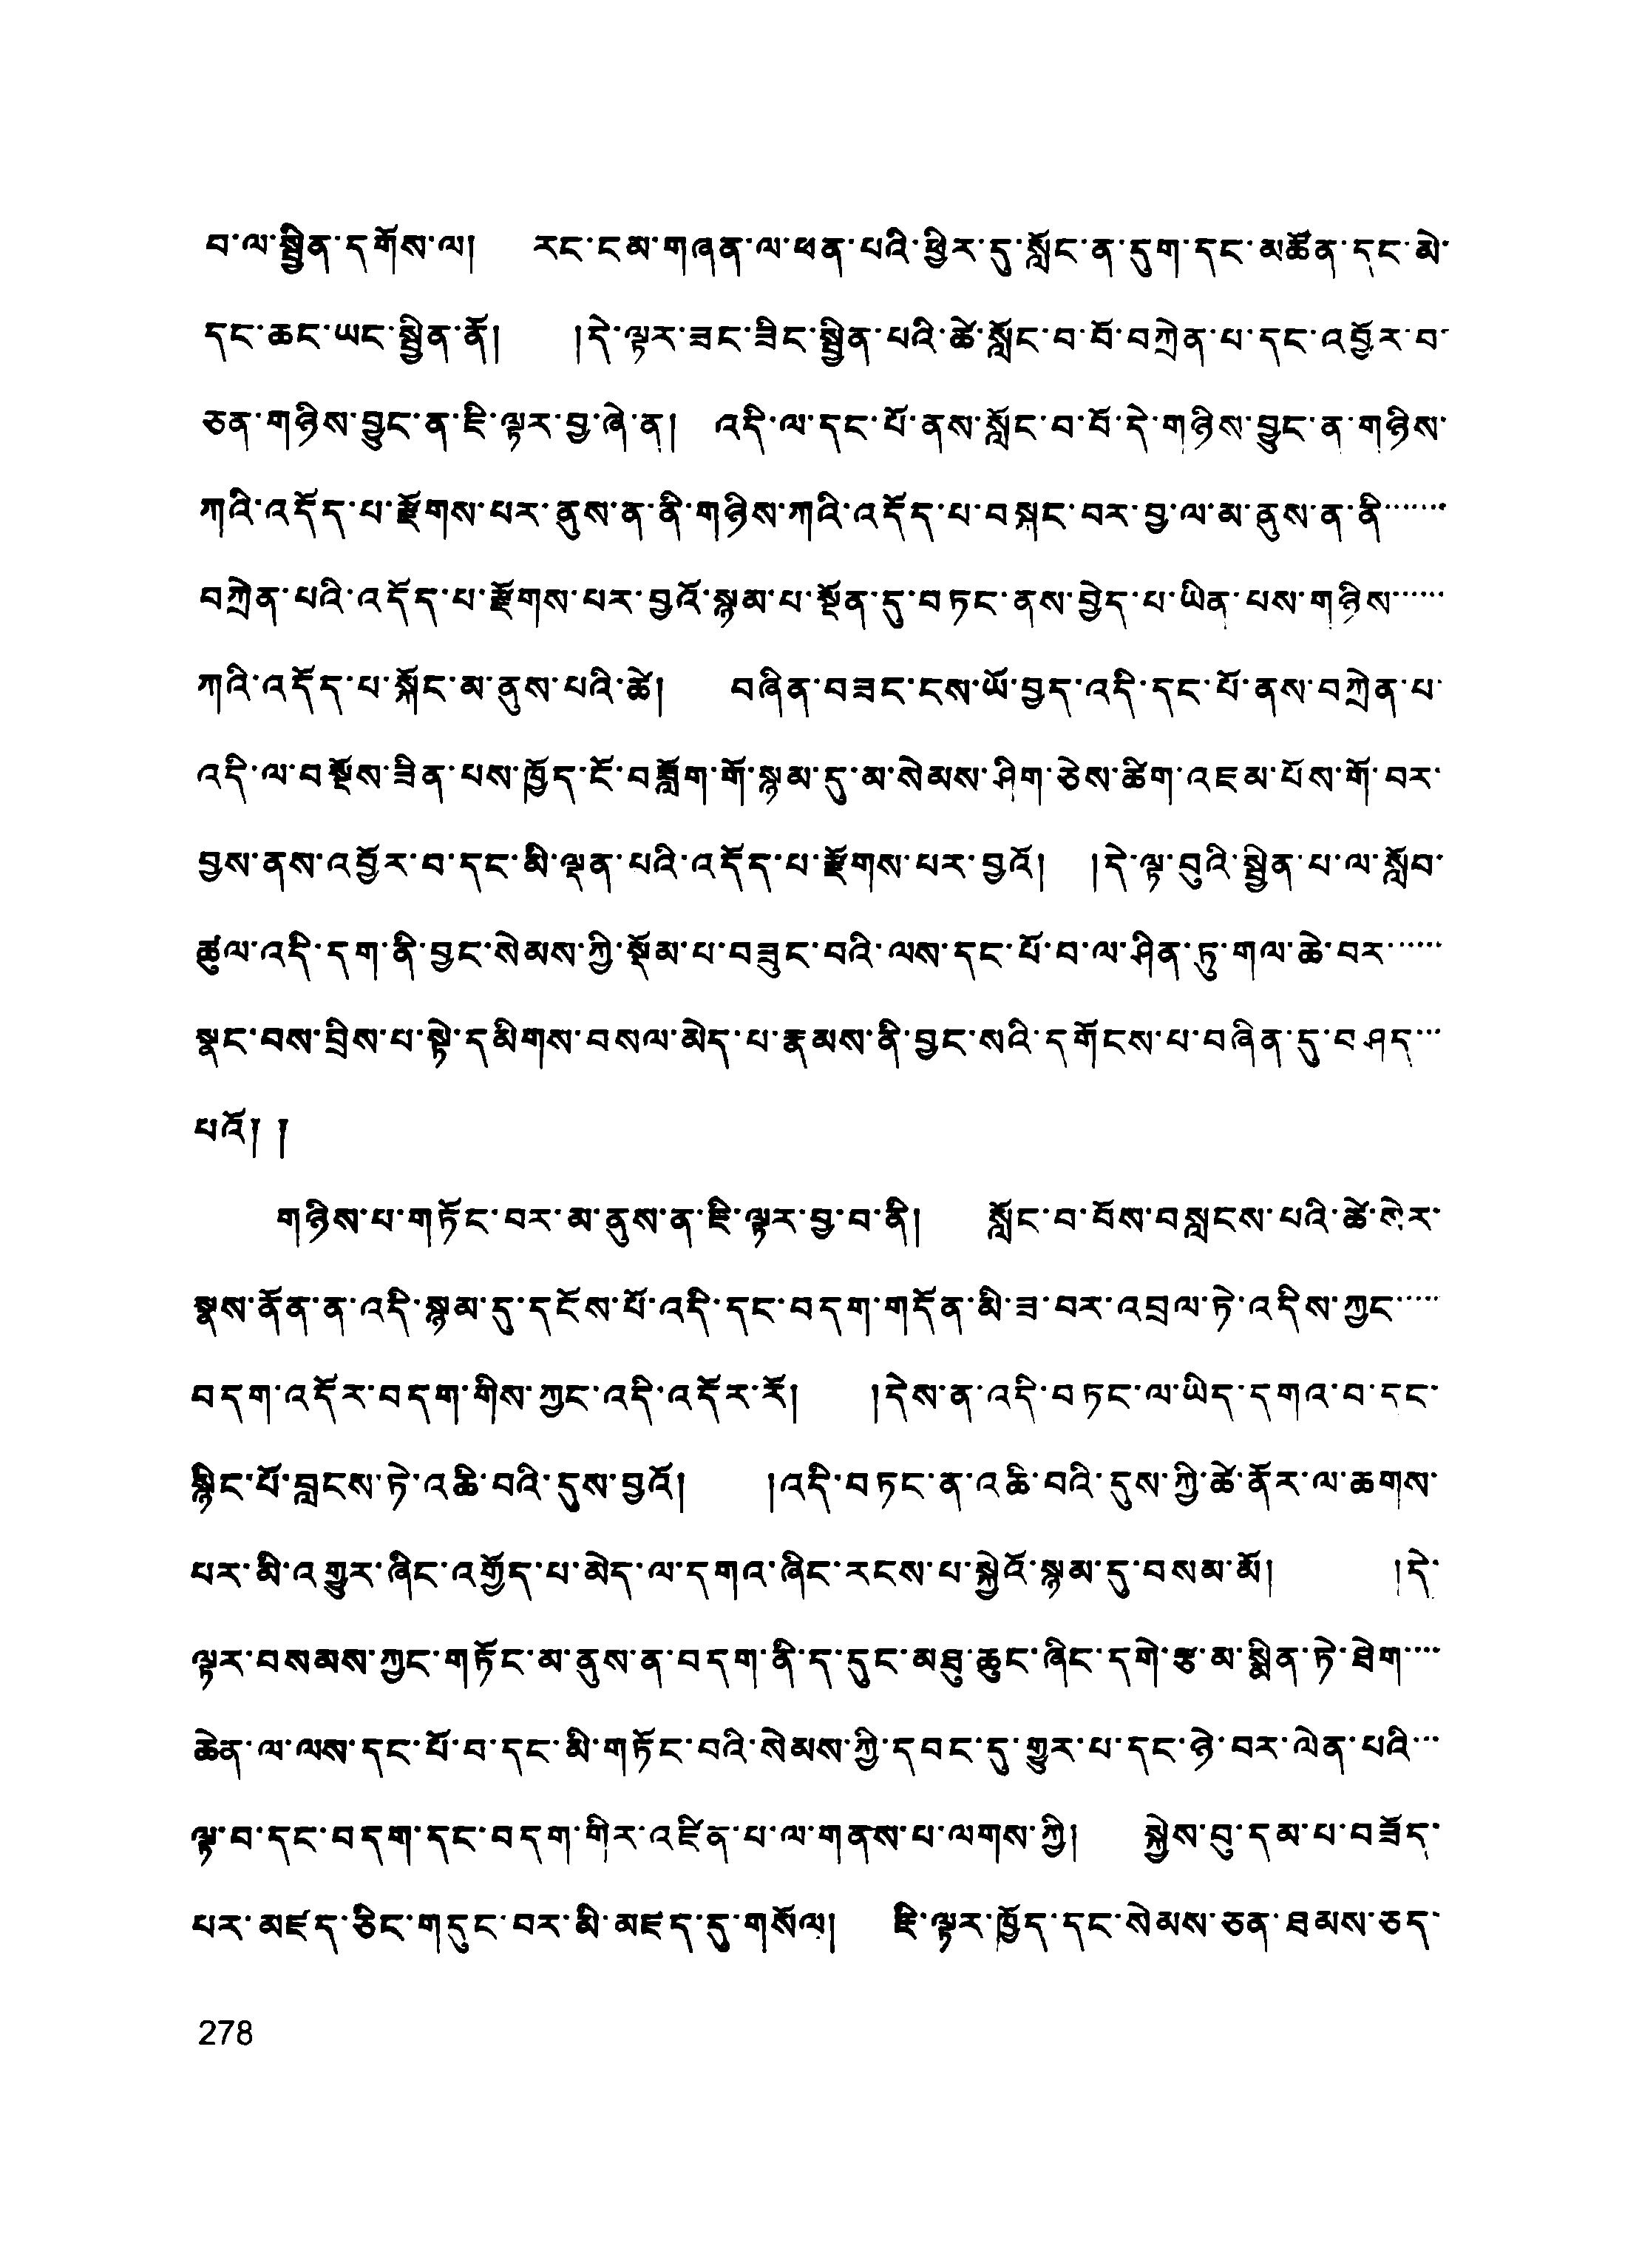 བ་ལ་སྦྱིན་དགོས་ལ། རང་ངམ་གཞན་ལ་ཕན་པའི་ཕྱིར་དུ་སློང་ན་དུག་དང་མཚོན་དང་མེ་
དང་ཆང་ཡང་སྦྱིན་ནོ། །དེ་ལྟར་ཟང་ཟིང་སྦྱིན་པའི་ཚེ་སློང་བ་བོ་བཀྲེན་པ་དང་འབྱོར་བ་
ཅན་གཉིས་བྱུང་ན་ཇི་ལྟར་བྱ་ཞེ་ན། འདི་ལ་དང་པོ་ནས་སློང་བ་བོ་དེ་གཉིས་བྱུང་ན་གཉིས་
ཀའི་འདོད་པ་རྫོགས་པར་ནུས་ན་ནི་གཉིས་ཀའི་འདོད་པ་བསྐང་བར་བྱ་ལ་མ་ནུས་ན་ནི་······
བཀྲེན་པའི་འདོད་པ་རྫོགས་པར་བྱའོ་སྙམ་པ་སྔོན་དུ་བཏང་ནས་བྱེད་པ་ཡིན་པས་གཉིས······
ཀའི་འདོད་པ་སྐོང་མ་ནུས་པའི་ཚེ། བཞིན་བཟང་ངས་ཡོ་བྱད་འདི་དང་པོ་ནས་བཀྲེན་པ་
འདི་ལ་བསྔོས་ཟིན་པས་ཁྱོད་ངོ་བཟློག་གོ་སྙམ་དུ་མ་སེམས་ཤིག་ཅེས་ཚིག་འཇམ་པོས་གོ་བར་
བྱས་ནས་འབྱོར་བ་དང་མི་ལྡན་པའི་འདོད་པ་རྫོགས་པར་བྱའོ། །དེ་ལྟ་བུའི་སྦྱིན་པ་ལ་སློབ་
ཚུལ་འདི་དག་ནི་བྱང་སེམས་ཀྱི་སྡོམ་པ་བཟུང་བའི་ལས་དང་པོ་བ་ལ་ཤིན་ཏུ་གལ་ཆེ་བར······
སྣང་བས་བྲིས་པ་སྟེ་དམིགས་བསལ་མེད་པ་རྣམས་ནི་བྱང་སའི་དགོངས་པ་བཞིན་དུ་བཤད···
པའོ། །
གཉིས་པ་གཏོང་བར་མ་ནུས་ན་ཇི་ལྟར་བྱ་བ་ནི། སློང་བ་བོས་བསླངས་པའི་ཚེ་སེར་
སྣས་ནོན་ན་འདི་སྙམ་དུ་དངོས་པོ་འདི་དང་བདག་གདོན་མི་ཟ་བར་འབྲལ་ཏེ་འདིས་ཀྱང·····
བདག་འདོར་བདག་གིས་ཀྱང་འདི་འདོར་རོ། །དེས་ན་འདི་བཏང་ལ་ཡིད་དགའ་བ་དང་
སྙིང་པོ་བླངས་ཏེ་འཆི་བའི་དུས་བྱའོ། །འདི་བཏང་ན་འཆི་བའི་དུས་ཀྱི་ཚེ་ནོར་ལ་ཆགས་
པར་མི་འགྱུར་ཞིང་འགྱོད་པ་མེད་ལ་དགའ་ཞིང་རངས་པ་སྐྱེའོ་སྙམ་དུ་བསམ་མོ། །དེ་
ལྟར་བསམས་ཀྱང་གཏོང་མ་ནུས་ན་བདག་ནི་ད་དུང་མཐུ་ཆུང་ཞིང་དགེ་རྩ་མ་སྨིན་ཏེ་ཐེག····
ཆེན་ལ་ལས་དང་པོ་བ་དང་མི་གཏོང་བའི་སེམས་ཀྱི་དབང་དུ་གྱུར་པ་དང་ཉེ་བར་ལེན་པའི···
ལྟ་བ་དང་བདག་དང་བདག་གིར་འཛིན་པ་ལ་གནས་པ་ལགས་ཀྱི། སྐྱེས་བུ་དམ་པ་བཟོད་
པར་མཛད་ཅིང་གདུང་བར་མི་མཛད་དུ་གསོལ། ཇི་ལྟར་ཁྱོད་དང་སེམས་ཅན་ཐམས་ཅད་
278